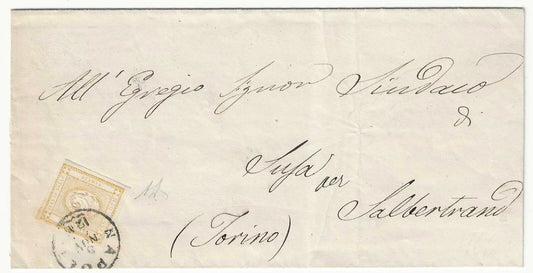 All' Egregio Signor Sindaco
di
Susa per Salbertrand
(Torino)
NAPOLI
9 NOV
12 M